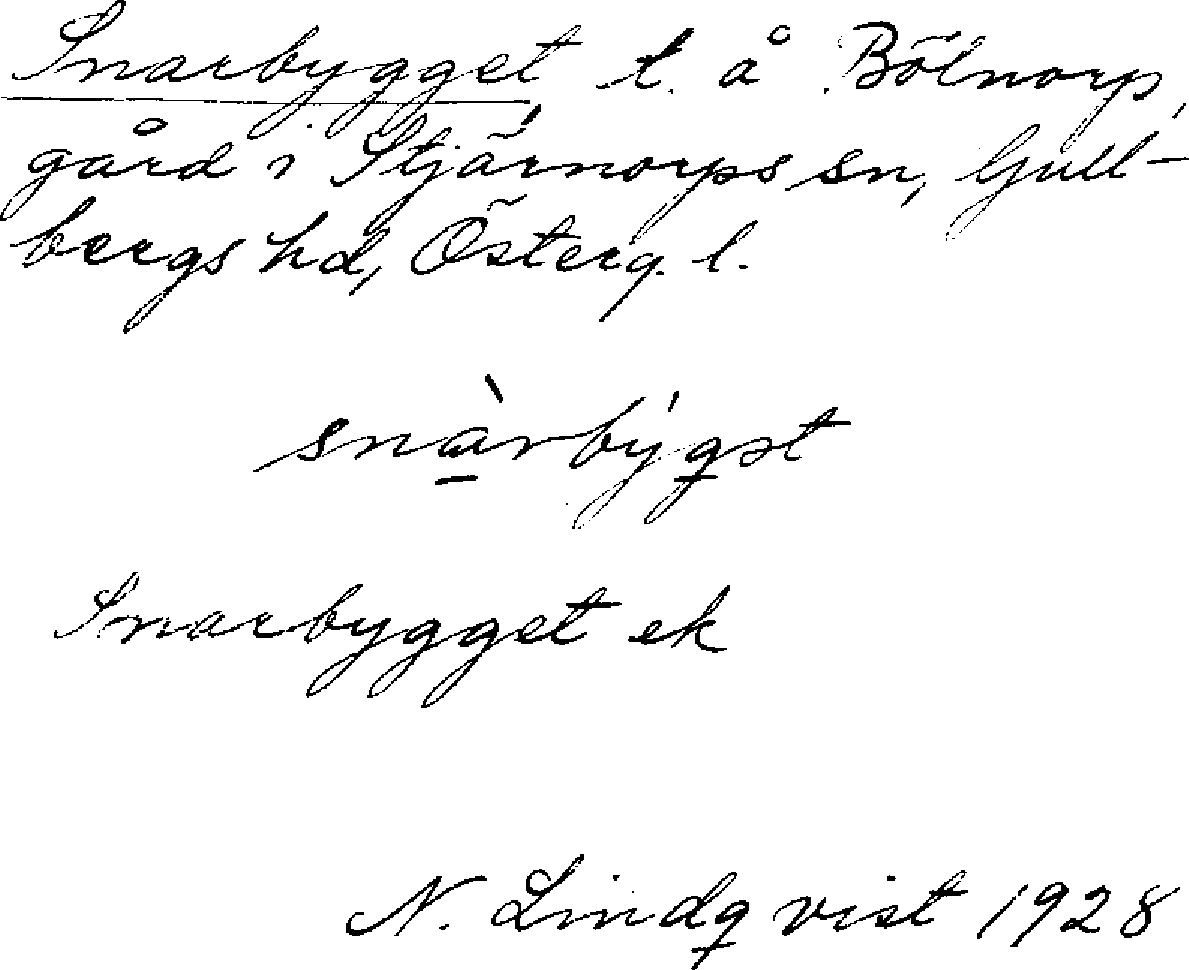 Snarbygget, t. å Bölnorp,
gård i Stjärnorps sn, Gull-
bergs hd, Österg. l.
snàrbýgət
Snarbygget ek
N. Lindqvist 1928